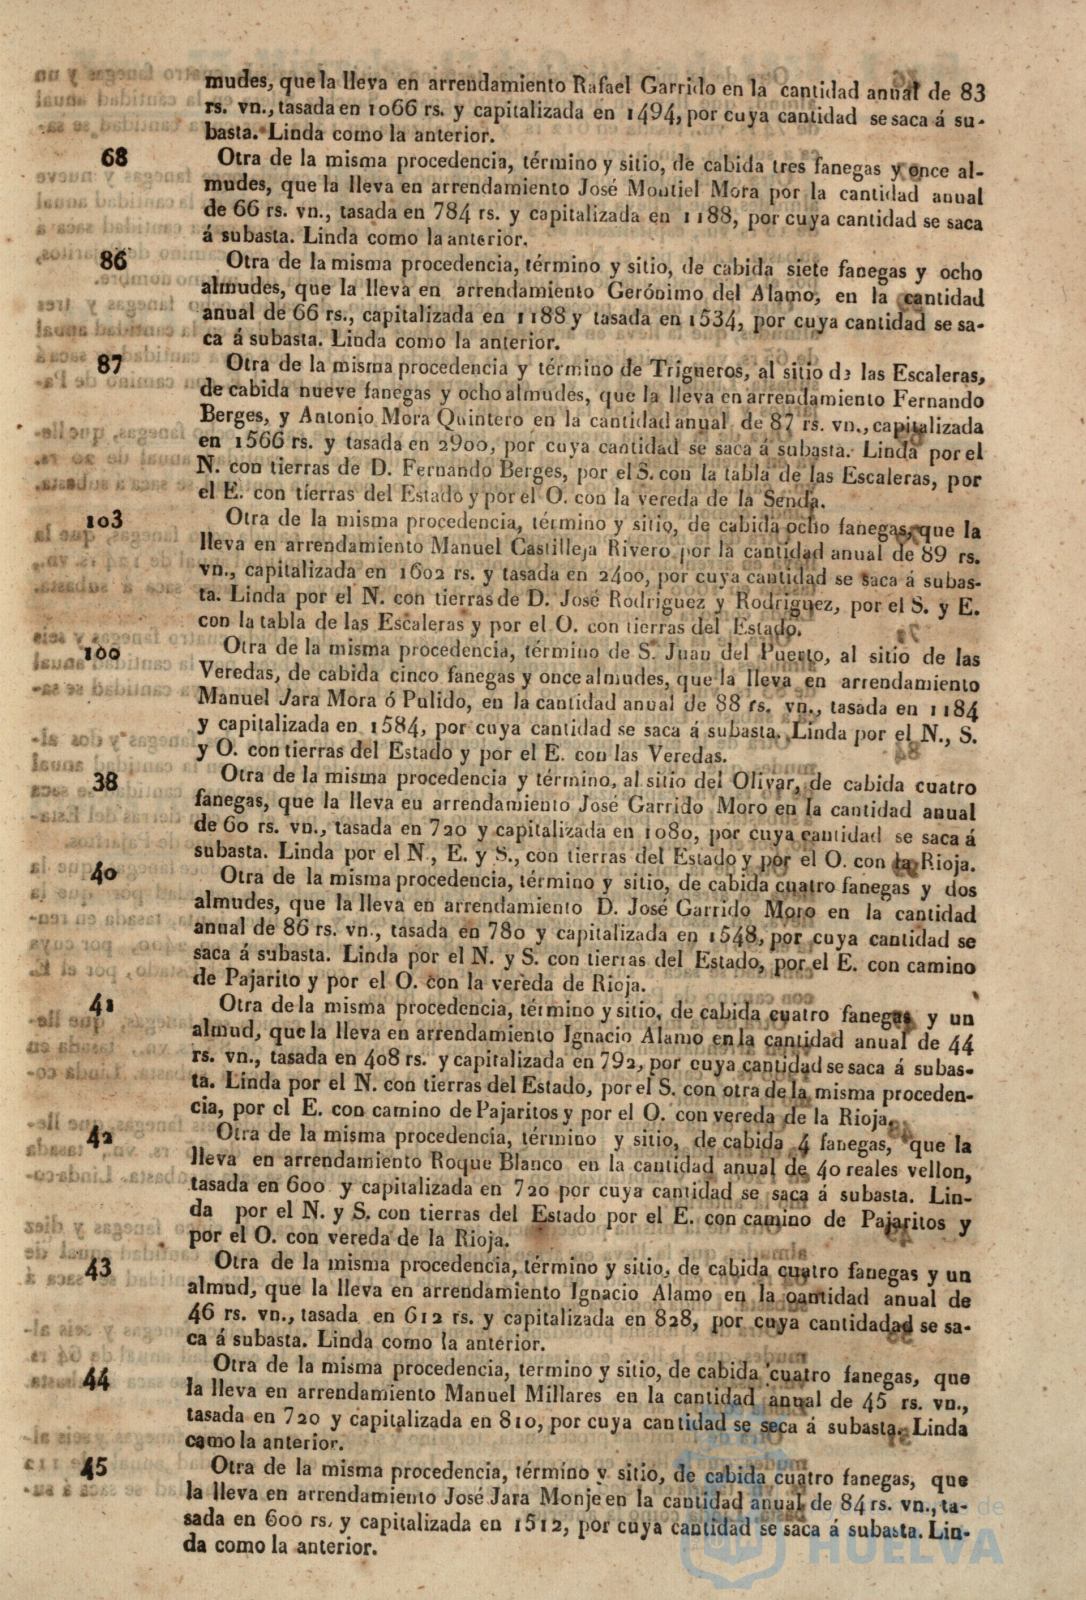 mudes, que la lleva en arrendamiento Rafael Garrido en la cantidad anual de 83
rs. vn., tasada en 1066 rs. y capitalizada en 1494, por cuya cantidad se saca á su-
basta. Linda como la anterior.
68 Otra de la misma procedencia, término y sitio, de cabida tres fanegas y once al-
mudes, que la lleva en arrendamiento José Montiel Mora por la cantidad anual
de 66 rs. vn., tasada en 784 rs. y capitalizada en 1188, por cuya cantidad se saca
á subasta. Linda como la anterior.
86 Otra de la misma procedencia, término y sitio, de cabida siete fanegas y ocho
almudes, que la lleva en arrendamiento Gerónimo del Alamo, en la cantidad
anual de 66 rs., capitalizada en 1188 y tasada en 1534, por cuya cantidad se sa-
ca á subasta. Linda como la anterior.
87 Otra de la misma procedencia y término de Trigueros, al sitio de las Escaleras,
de cabida nueve fanegas y ocho almudes, que la lleva en arrendamiento Fernando
Berges, y Antonio Mora Quintero en la cantidad anual de 87 rs. vn., capitalizada
en 1566 rs. y tasada en 2900, por cuya cantidad se saca á subasta. Linda por el
N. con tierras de D. Fernando Berges, por el S. con la tabla de las Escaleras, por
el E. con tierras del Estado y por el O. con la vereda de la Senda.
103 Otra de la misma procedencia, término y sitio, de cabida ocho fanegas, que la
lleva en arrendamiento Manuel Castilleja Rivero por la cantidad anual de 89 rs.
vn., capitalizada en 1602 rs. y tasada en 2400, por cuya cantidad se saca á subas-
ta. Linda por el N. con tierras de D. José Rodriguez y Rodriguez, por el S. y E.
con la tabla de las Escaleras y por el O. con tierras del Estado.
100 Otra de la misma procedencia, término de S. Juan del Puerto, al sitio de las
Veredas, de cabida cinco fanegas y once almudes, que la lleva en arrendamiento
Manuel Jara Mora ó Pulido, en la cantidad anual de 88 rs. vn., tasada en 1184
y capitalizada en 1584, por cuya cantidad se saca á subasta. Linda por el N., S.
y O. con tierras del Estado y por el E. con las Veredas.
38 Otra de la misma procedencia y término, al sitio del Olivar, de cabida cuatro
fanegas, que la lleva eu arrendamiento José Garrido Moro en la cantidad anual
de 60 rs. vn., tasada en 720 y capitalizada en 1080, por cuya cantidad se saca á
subasta. Linda por el N., E. y S., con tierras del Estado y por el O. con la Rioja.
40 Otra de la misma procedencia, término y sitio, de cabida cuatro fanegas y dos
almudes, que la lleva en arrendamiento D. José Garrido Moro en la cantidad
anual de 86 rs. vn., tasada en 780 y capitalizada en 1548, por cuya cantidad se
saca á subasta. Linda por el N. y S. con tierras del Estado, por el E. con camino
de Pajarito y por el O. con la vereda de Rioja.
41 Otra de la misma procedencia, término y sitio, de cabida cuatro fanegas y un
almud, que la lleva en arrendamiento Ignacio Alamo en la cantidad anual de 44
rs. vn., tasada en 408 rs. y capitalizada en 792, por cuya cantidad se saca á subas-
ta. Linda por el N. con tierras del Estado, por el S. con otra de la misma proceden-
cia, por el E. con camino de Pajaritos y por el O. con vereda de la Rioja.
42 Otra de la misma procedencia, término y sitio, de cabida 4 fanegas, que la
lleva en arrendamiento Roque Blanco en la cantidad anual de 40 reales vellon,
tasada en 600 y capitalizada en 720 por cuya cantidad se saca á subasta. Lin-
da por el N. y S. con tierras del Estado por el E. con camino de Pajaritos y
por el O. con vereda de la Rioja.
43 Otra de la misma procedencia, término y sitio, de cabida cuatro fanegas y un
almud, que la lleva en arrendamiento Ignacio Alamo en la cantidad anual de
46 rs. vn., tasada en 612 rs. y capitalizada en 828, por cuya cantidadad se sa-
ca á subasta. Linda como la anterior.
44 Otra de la misma procedencia, termino y sitio, de cabida cuatro fanegas, que
la lleva en arrendamiento Manuel Millares en la cantidad anual de 45 rs. vn.,
tasada en 720 y capitalizada en 810, por cuya cantidad se seca á subasta. Linda
como la anterior.
45 Otra de la misma procedencia, término y sitio, de cabida cuatro fanegas, que
la lleva en arrendamiento José Jara Monje en la cantidad anual de 84 rs. vn., ta-
sada en 600 rs. y capitalizada en 1512, por cuya cantidad se saca á subasta. Lin-
da como la anterior.
de
HUELVA